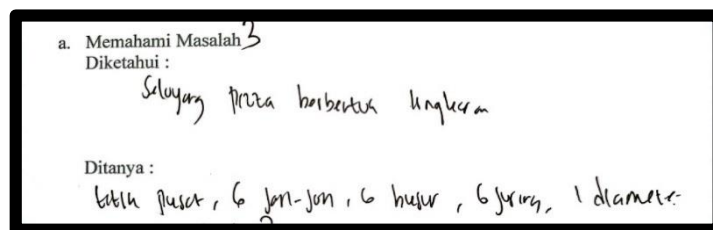 a. Memahami Masalah 3
Diketahui :
Seloyang pizza berbentuk lingkaran
Ditanya :
titik pusat, 6 jari-jari, 6 busur, 6 juring, 1 diameter